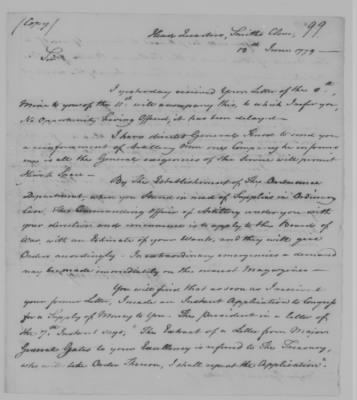 (Copy)
99
Head Quarters, Smiths Clove,
13th June 1779
Sir
I yesterday received Your Letter of the
Mine to you of the 11th will accompany this, to which I refer you,
No Opportunity having offered, it has been delayed —
I have directed General Knox to send you
a reinforcement of Artillery Men one Company he informs
me is all the General exigencies of the Service will permit
By the Establishment of The Ordnance
Department, when you Stand in need of Supplies in Ordinary
Cases, the Commanding Officer of Artillery under you with
your direction and concurrence is to apply to the Board of
War, with an Estimate of your Wants, and they will give
Orders accordingly — In extraordinary emergencies a demand
may be made immediately on the nearest Magazines —
You will find that as soon as I received
your former Letter, I made an Instant Application to Congress
for a Supply of Money to You. The President in a letter of
the 7th Instant says, "The Extract of a Letter from Major
General Gates to your Excellency is referred to the Treasury,
who will take Order Thereon, I shall repeat the Application".